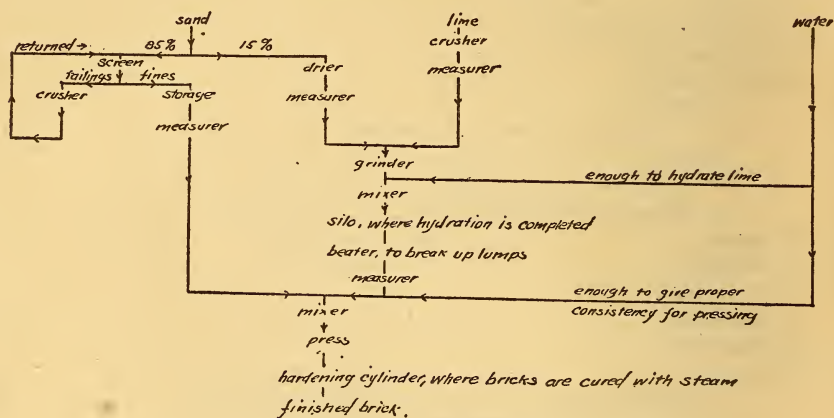 sand
lime
water
returned → 85% 15%
crusher
screen
drier
measurer
tailings fines
crusher
storage
measurer
measurer
grinder
enough to hydrate lime
mixer
silo, where hydration is completed
beater, to break up lumps
measurer
enough to give proper
mixer
consistency for pressing
press
hardening cylinder, where bricks are cured with steam
finished brick.